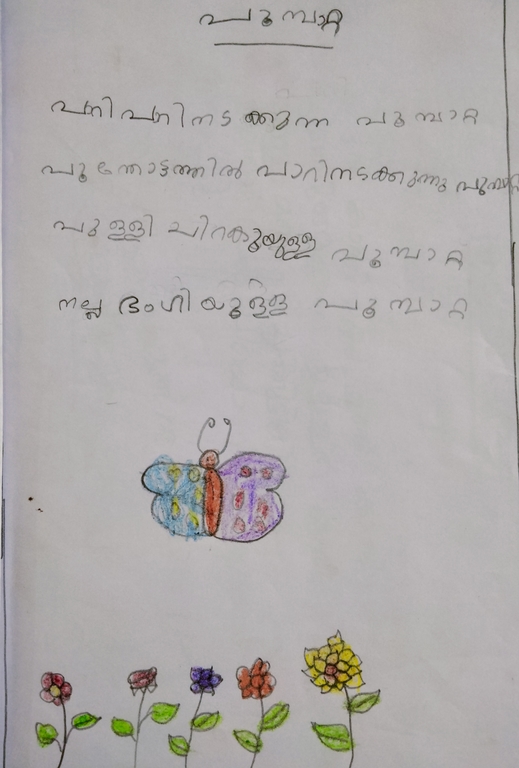 പൂമ്പാറ്റ
പറിപറിനടക്കുന്ന പൂമ്പാറ്റ
പൂന്തോട്ടത്തിൽ പാറിനടക്കുന്നു പൂമ്പാറ്റ
പുള്ളി ചിറകുയുള്ള പൂമ്പാറ്റ
നല്ല ഭംഗിയുള്ള പൂമ്പാറ്റ